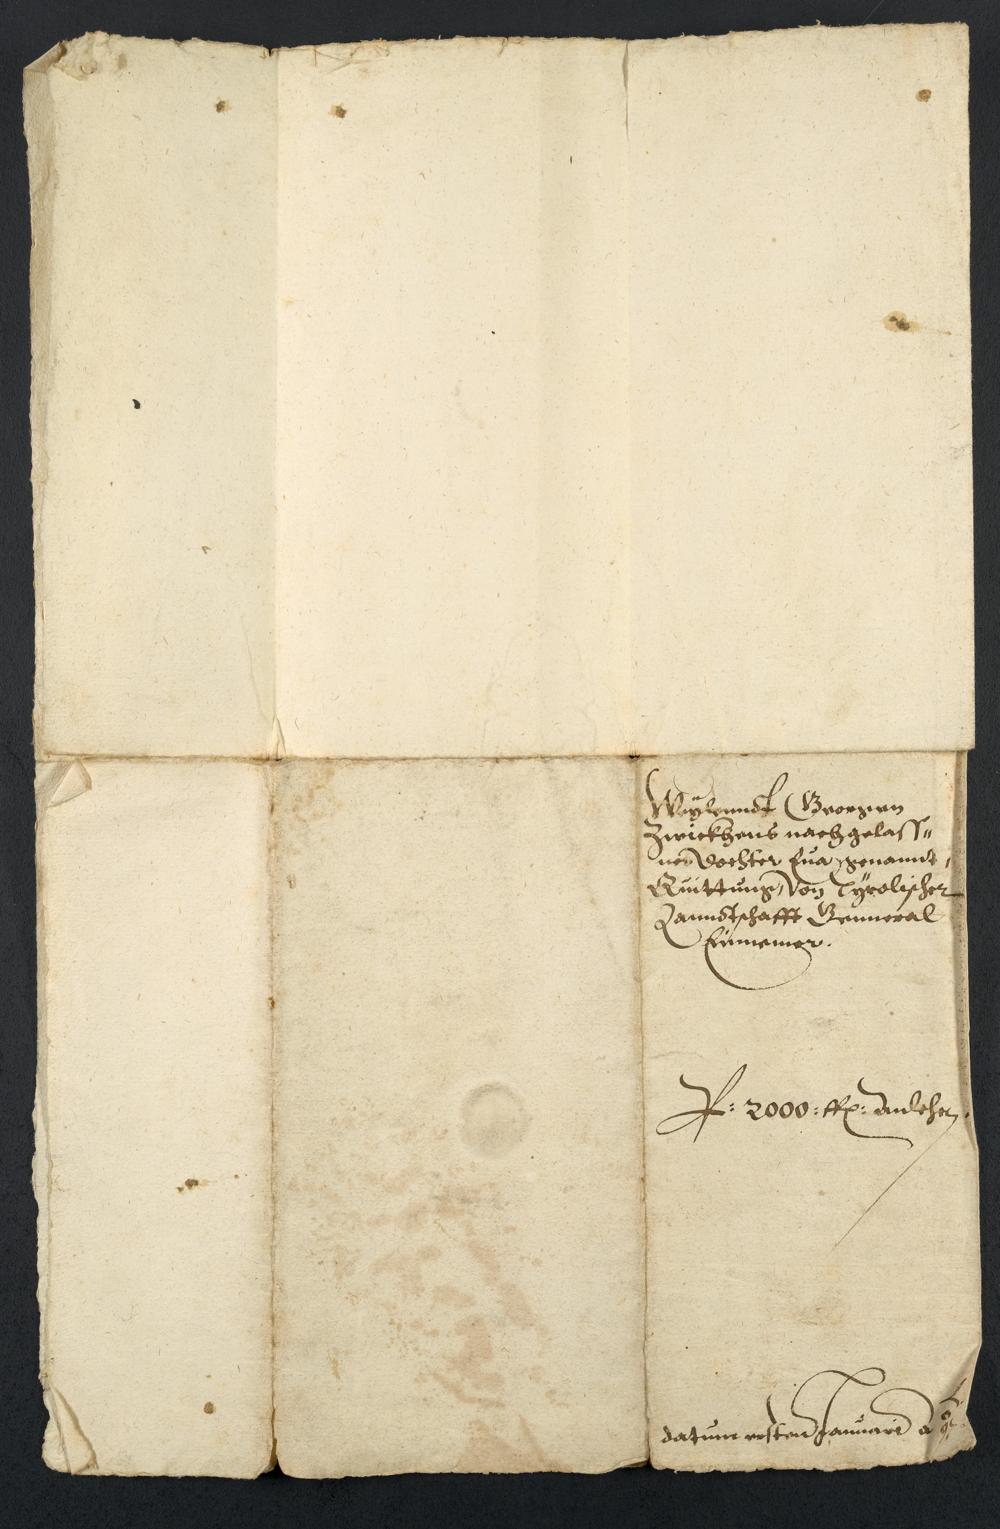 Weylenndt Georgen
Zwickhens nachgelass=
ne Dochter Eua genannt,
Quittung, Von Tyrolischer
Lanndtschafft General
Einnemer.
P: 2000: fl: Anlehen.
datum ersten Januari a